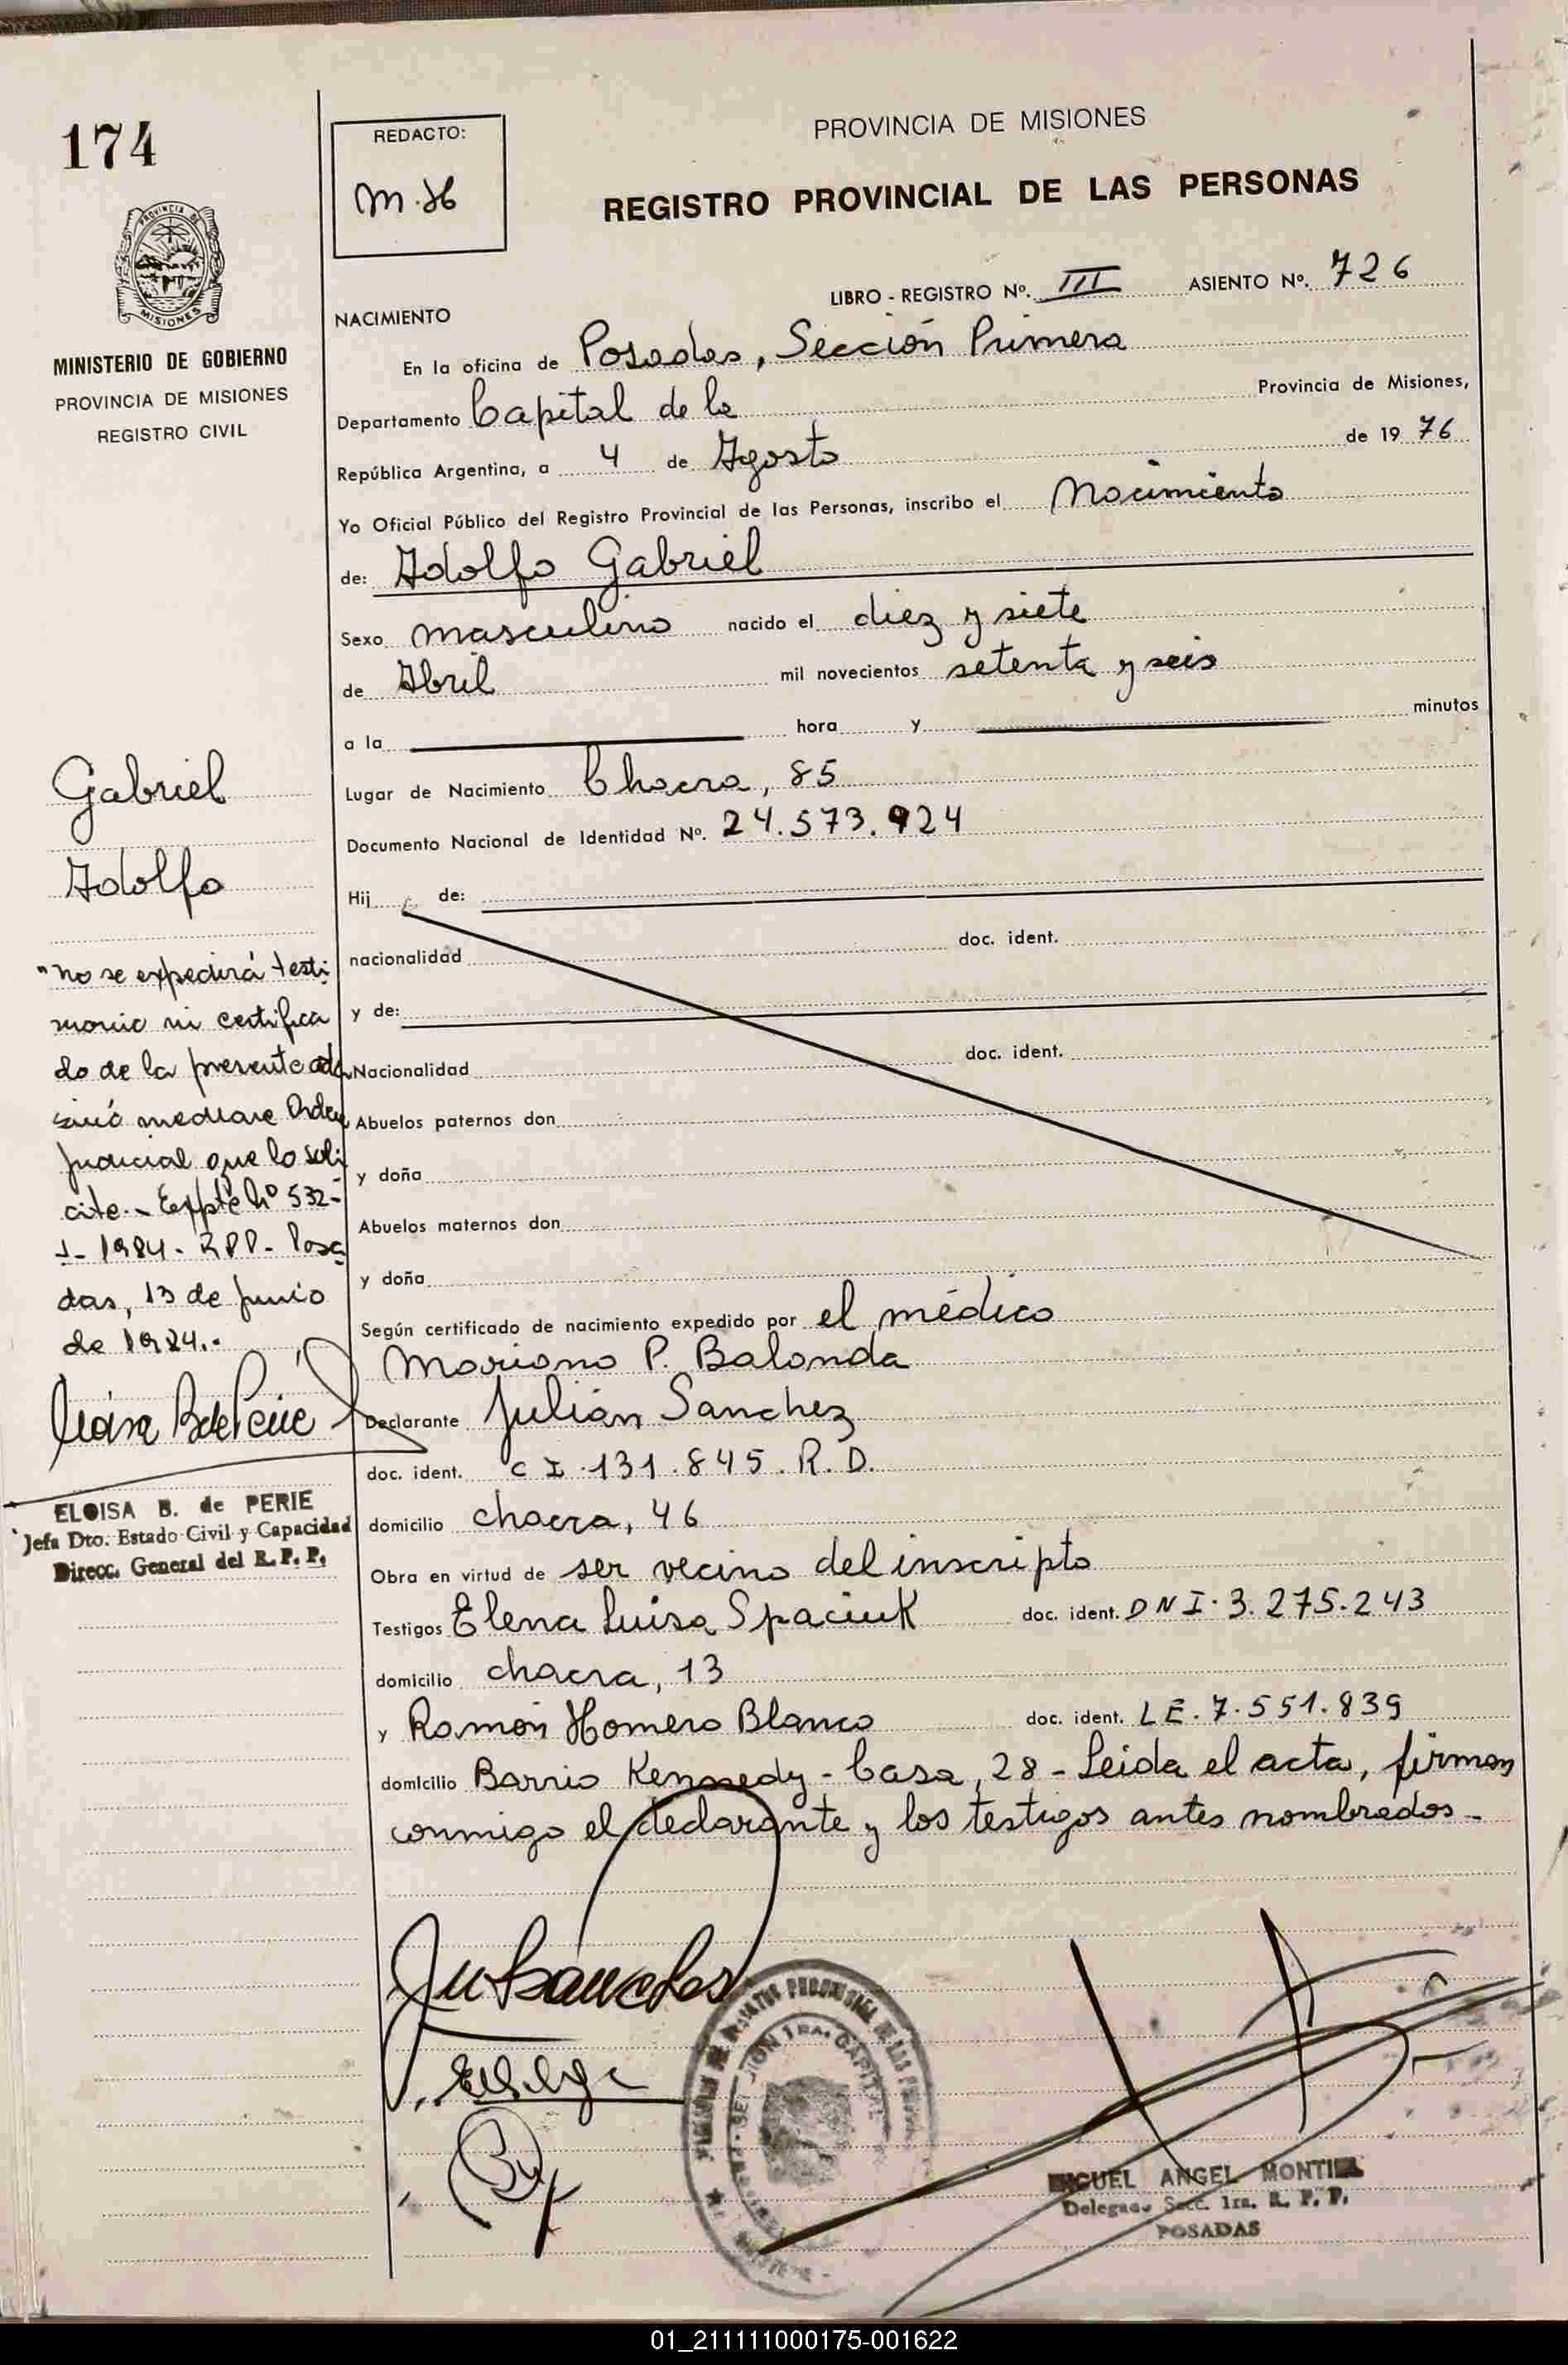 174
MINISTERIO DE GOBIERNO
PROVINCIA DE MISIONES
REGISTRO CIVIL
REDACTO:
M.H
PROVINCIA DE MISIONES
REGISTRO PROVINCIAL DE LAS PERSONAS
LIBRO - REGISTRO Nº. III ASIENTO Nº. 726
NACIMIENTO
En la oficina de Posadas, Sección Primera
Departamento Capital de la Provincia de Misiones,
República Argentina, a 4 de Agosto de 1976
Yo Oficial Público del Registro Provincial de las Personas, inscribo el Nacimiento
de: Adolfo Gabriel
Sexo masculino nacido el diez y siete
de Abril mil novecientos setenta y seis
a la hora y minutos
Lugar de Nacimiento Chacra, 85
Documento Nacional de Identidad Nº. 24.573.924
Hij de:
nacionalidad doc. ident.
y de:
Nacionalidad doc. ident.
Abuelos paternos don
y doña
Abuelos maternos don
y doña
Según certificado de nacimiento expedido por el médico
Mariano P. Balonda
Declarante Julián Sanchez
doc. ident. C I .131.845. R. D.
domicilio chacra, 46
Obra en virtud de ser vecino del inscripto
Testigos Elena Luisa Spaciuk doc. ident. DNI. 3.275.243
domicilio chacra, 13
y Ramón Homero Blanco doc. ident. LE. 7.551.839
domicilio Barrio Kennedy - Casa, 28 - Leida el acta, firman
conmigo el declarante y los testigos antes nombrados -
Gabriel
Adolfo
"No se expedirá testi
monio ni certifica
do de la presente
sinó mediare Orden
Judicial que lo soli
cite.- Expte Nº 532-
1984 - RPP - Posa
das, 13 de Junio
de 1984.-
ELOISA B. de PERIE
Jefa Dto. Estado Civil y Capacidad
Direcc. General del R. P. P.
SECCION 1ra. CAPITAL
MIGUEL ANGEL MONTIEL
Delegado Secc. 1ra. R. P. P.
POSADAS
01_211111000175-001622